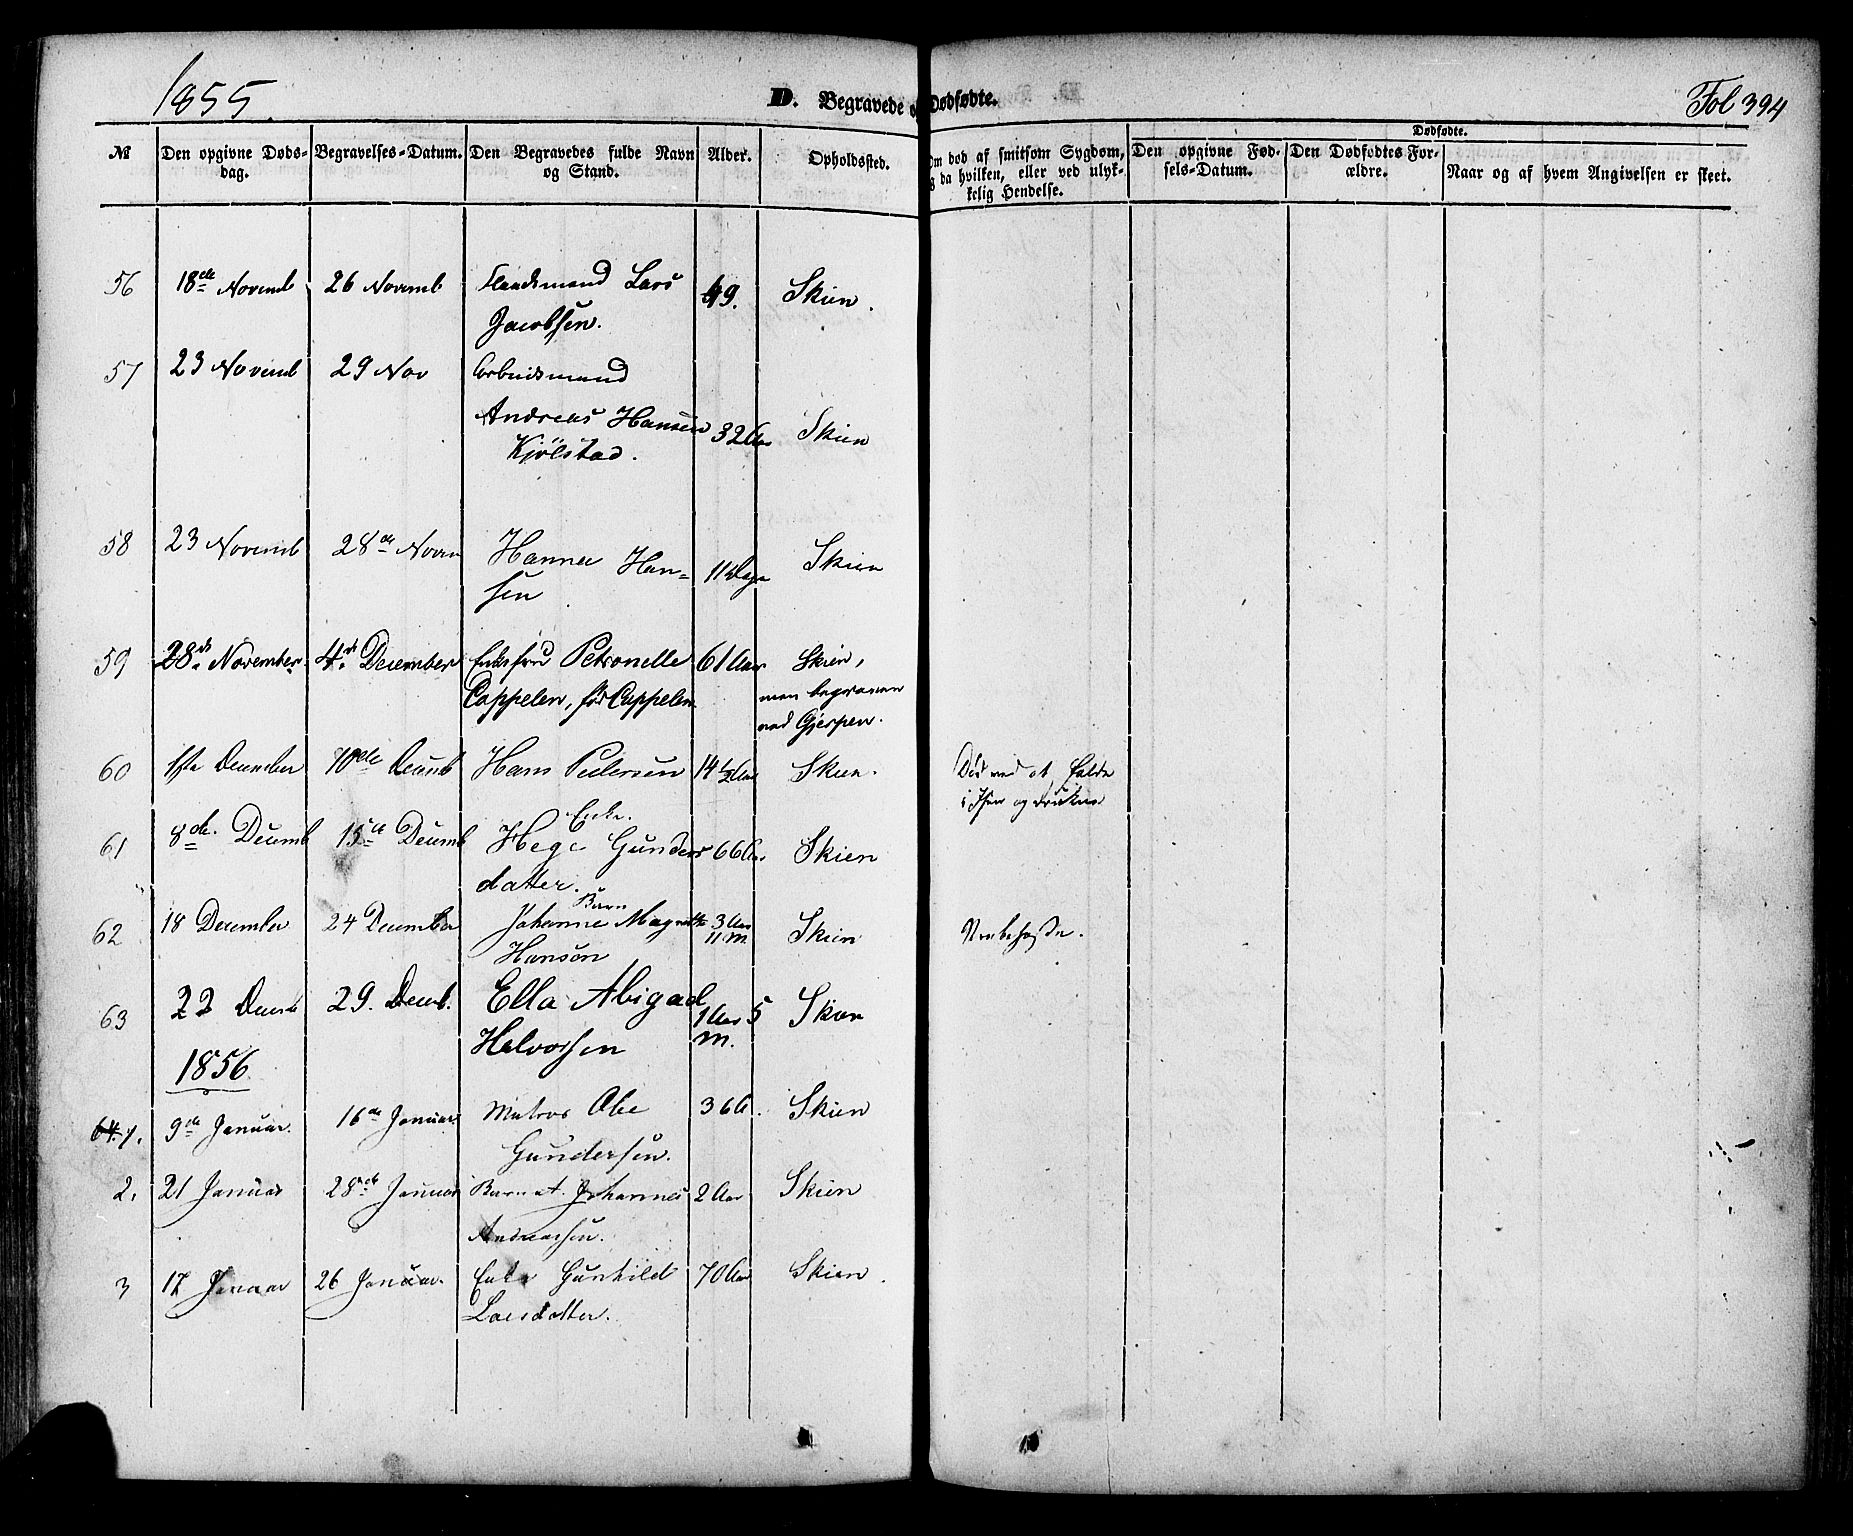 1855.
D. Begravede o Dødfødte.
Fol 394
№
Den opgivne Døds-
dag.
Begravelses-Datum.
Den Begravedes fulde Navn
og Stand.
Alder.
Opholdssted.
Om død af smitsom Sygdom,
da hvilken, eller ved ulyk-
kelig Hendelse.
Dødfødte.
Den opgivne Fød-
sels-Datum.
Den Dødfødtes For-
ældre.
Naar og af hvem Angivelsen er skeet.
56 18de Novemb 26 Novemb Lars 49. Skien.
Jacobsen.
57 23 Novemb 29 Nov Arbeidsmand
Andreas Hansen 32 Aar Skien
Kjölstad.
58 23 Novemb 28de Novem Hanna Han- 11 Dage Skien
sen
59 28de November. 4de December Enkefru Petronelle 61 Aar Skien,
Cappelen, för Cappelen men begraven
ved Gjerpen.
60 1ste December 10de Decemb Hans Pedersen 14 1/2 Aar Skien. Död ved at falde
i Isen og drukne
61 8de. Decemb 15de Decemb Enke.
Hege Gunders 66 Aar Skien
datter.
62 18 December 24 December Barn
Johanne Magrethe 3 Aar Skien Strubehoste.
Hanson 11 M
63 22 Decemb 29. Decemb. Ella Abigael 1 Aar 5 Skien
Halvorsen M.
1856.
64. 1. 9de Januar. 16de Januar. Matros Ole 36 A. Skien
Gundersen.
2. 21 Januar 28de Januar Barn at Johannes 2 Aar Skien
Andreassen.
3 17 Januar 26 Januar. Enke Gunhild 70 Aar Skien.
Larsdatter.